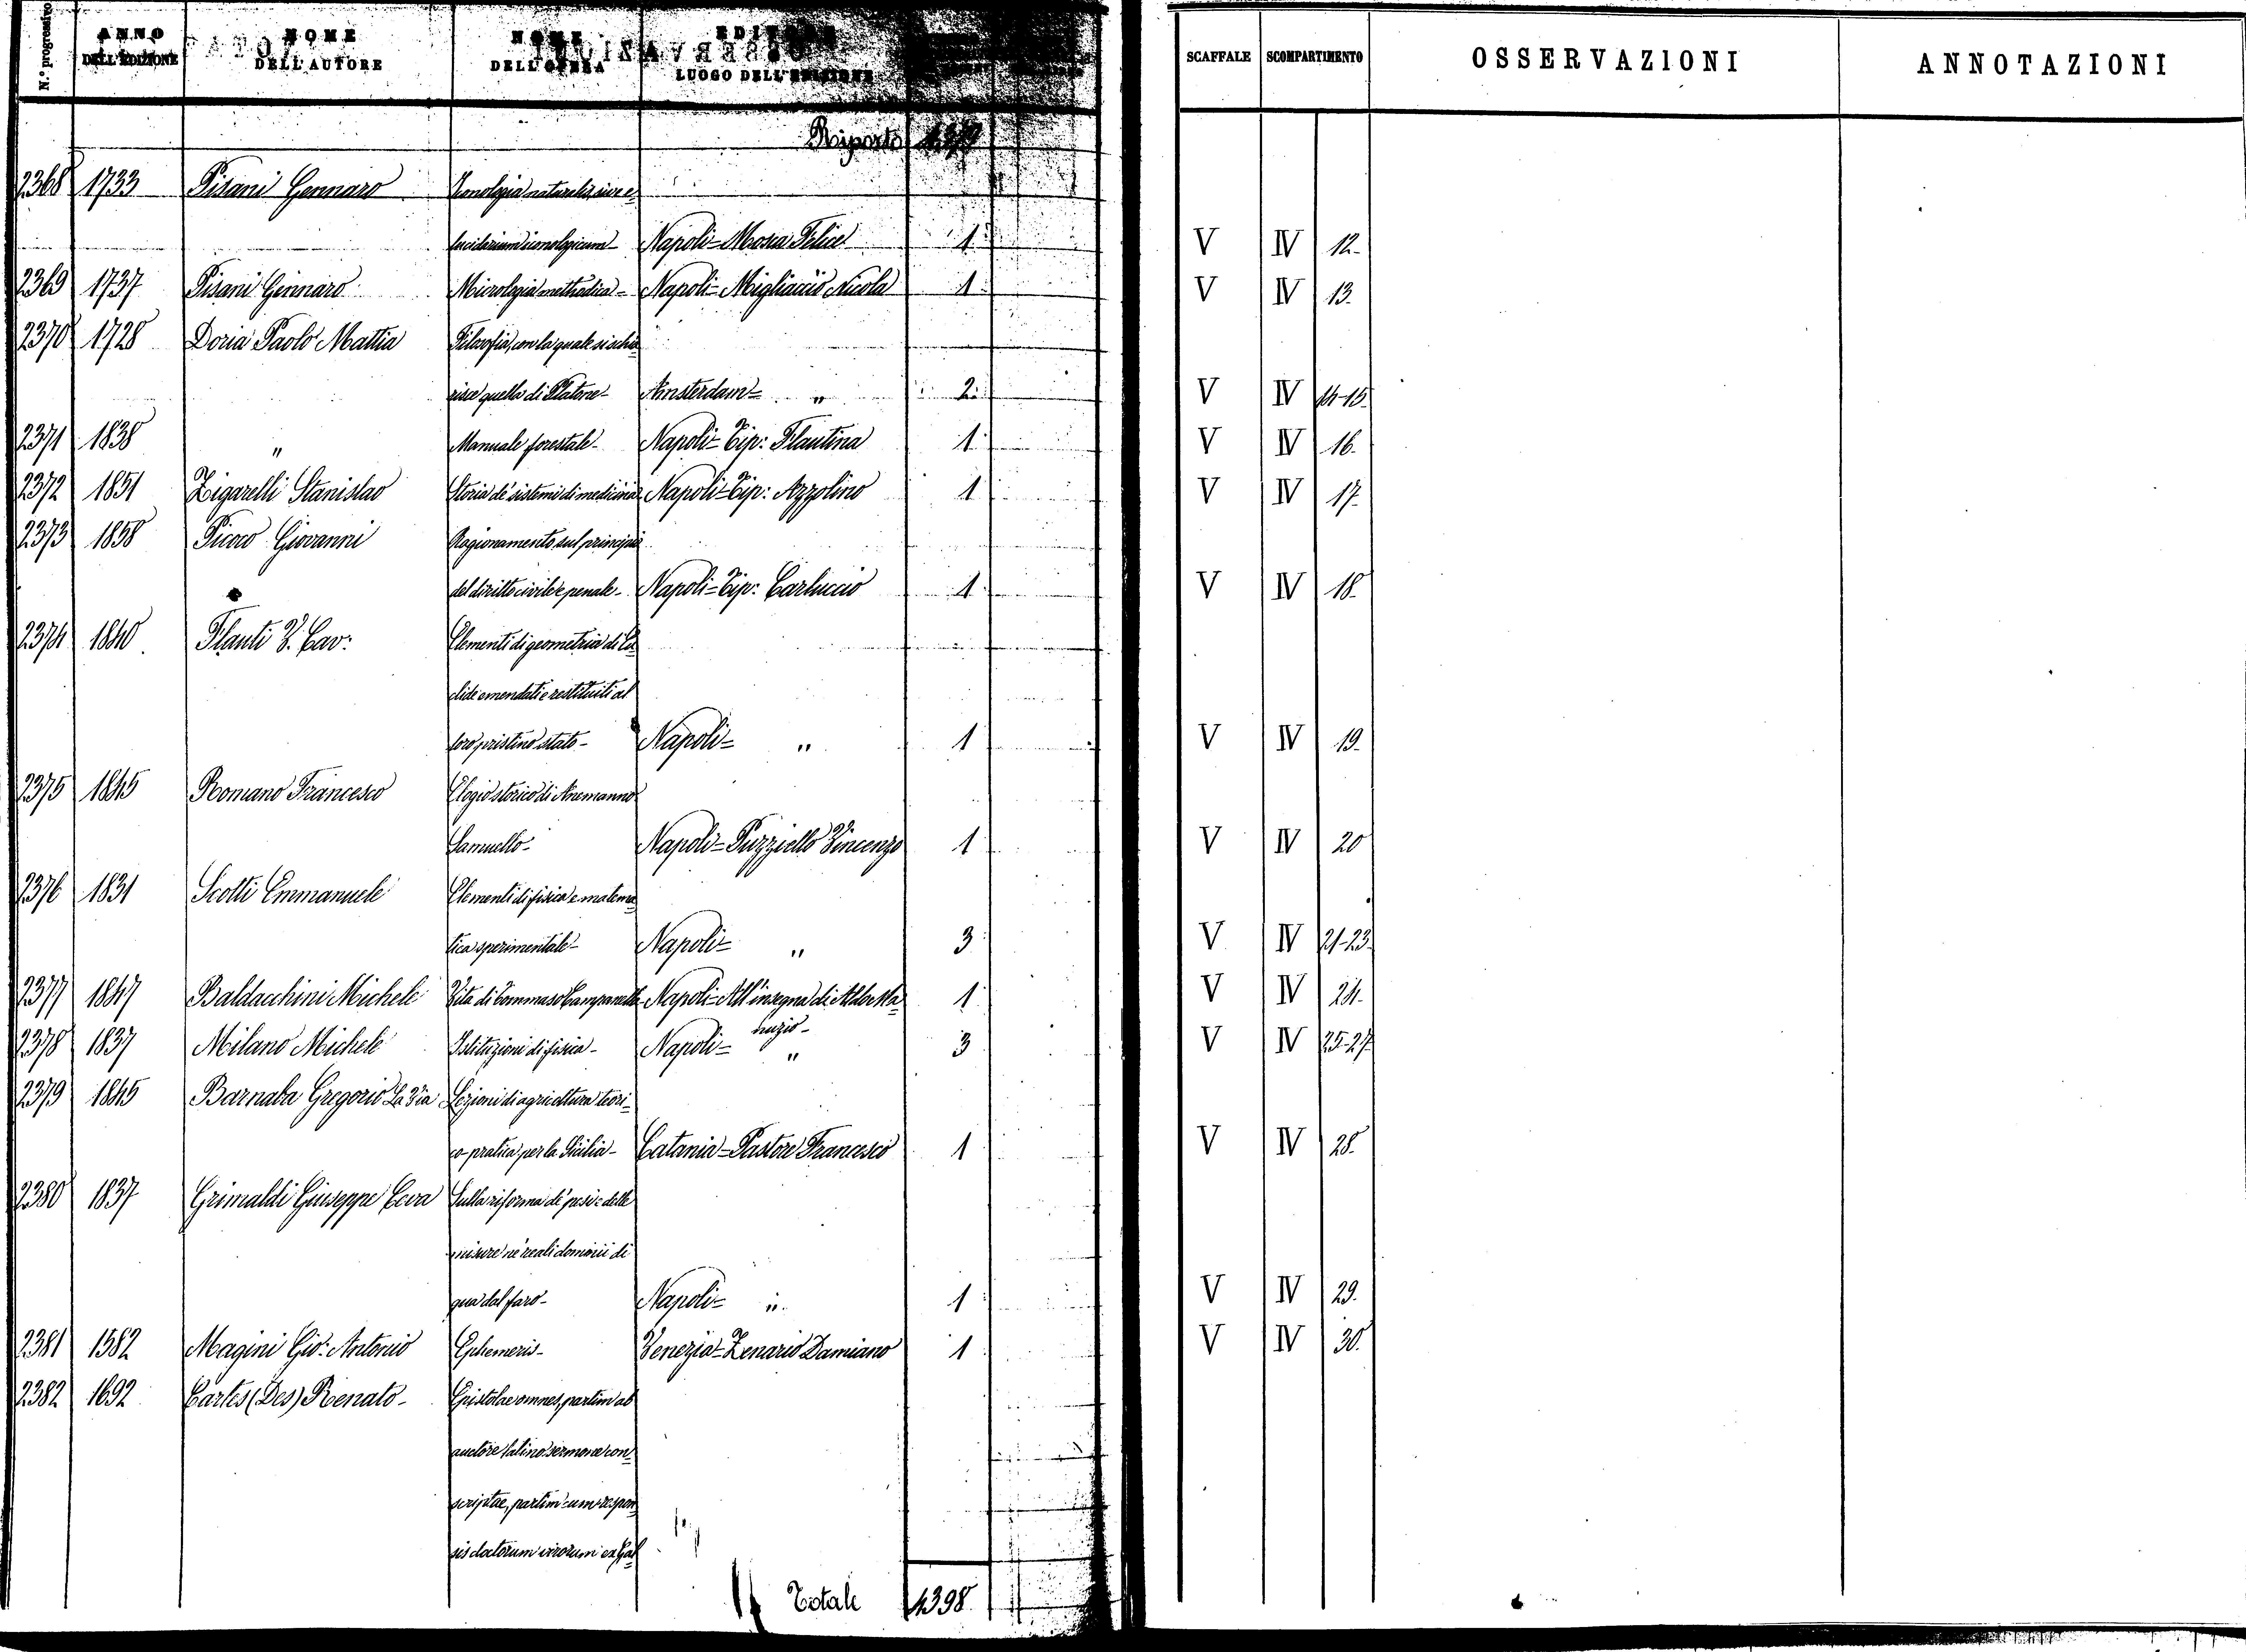 N.° progressivo ANNO DELL'EDIZIONE NOME DELL'AUTORE NOME DELL'OPERA LUOGO DELL'EDIZIONE SCAFFALE SCOMPARTIMENTO OSSERVAZIONI ANNOTAZIONI
Riporto
2368 1733 Pisani Gennaro naturalis, sive e-
lucidarium Napoli= Mosca Felice 1 V IV 12.
2369 1737 Pisani Gennaro Micrologia methodica- Napoli= Migliaccio Nicola 1 V IV 13.
2370 1728 Doria Paolo Mattia Filosofia, con la quale si schia-
risce quella di Platone- Amsterdam= " 2 V IV 14-15.
2371 1838 " Manuale forestale- Napoli= Tip: Flautina 1 V IV 16.
2372 1851 Zigarelli Stanislao Storia de' sistemi di medicina Napoli= Tip: Azzolino 1 V IV 17.
2373 1858 Giovanni Ragionamento sul principii
del diritto civile e penale- Napoli= Tip: Carluccio 1 V IV 18.
2374 1840 Flauti V. Cav: Elementi di geometria di Eu-
clide emendati e restituiti al
loro pristino stato- Napoli= " 1 V IV 19.
2375 1845 Romano Francesco Elogio storico di
Napoli= Puzziello Vincenzo 1 V IV 20
2376 1831 Scotti Emmanuele Elementi di fisica e matema-
tica sperimentale- Napoli= " 3 V IV 21-23.
2377 1847 Baldacchini Michele Vita di Tommaso Campanella Napoli= All'insegna di Aldo Ma- 1 V IV 24.
nuzio-
2378 1837 Milano Michele Istituzioni di fisica- Napoli= " 3 V IV 25-27.
2379 1845 Barnaba Gregorio La Via Lezioni di agricoltura teori-
co pratica per la Sicilia- Catania= Pastore Francesco 1 V IV 28.
2380 1837 Grimaldi Giuseppe Ceva Sulla riforma de' pesi e delle
misure ne' reali dominii di
qua dal faro- Napoli= " 1 V IV 29.
2381 1582 Magini Gio: Antonio Ephemeris- Venezia= Zenario Damiano 1 V IV 30.
2382 1692 Cartes (Des) Renato- Epistolae omnes, partim ab
auctore latino sermone con-
scriptae, partim cum respon-
sis doctorum virorum ex Gal-
Totale 4398